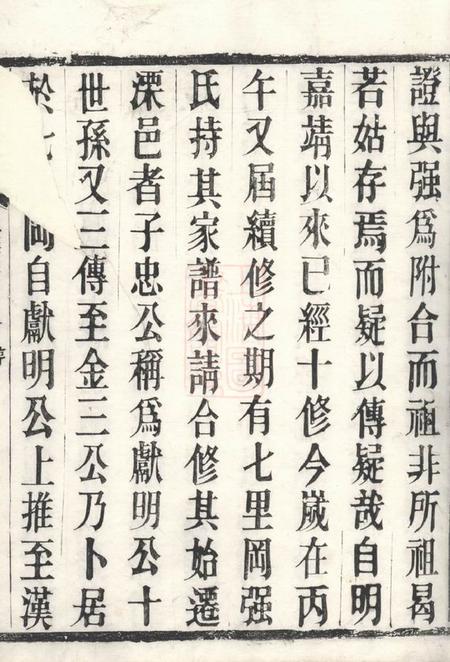 證與强爲附合而祖非所祖曷
若姑存焉而疑以傳疑哉自明
嘉靖以來已經十修今歲在丙
午又屆續修之期有七里岡强
氏持其家譜來請合修其始遷
溧邑者子忠公稱爲獻明公十
世孫又三傳至金三公乃卜居
於七岡自獻明公上推至漢